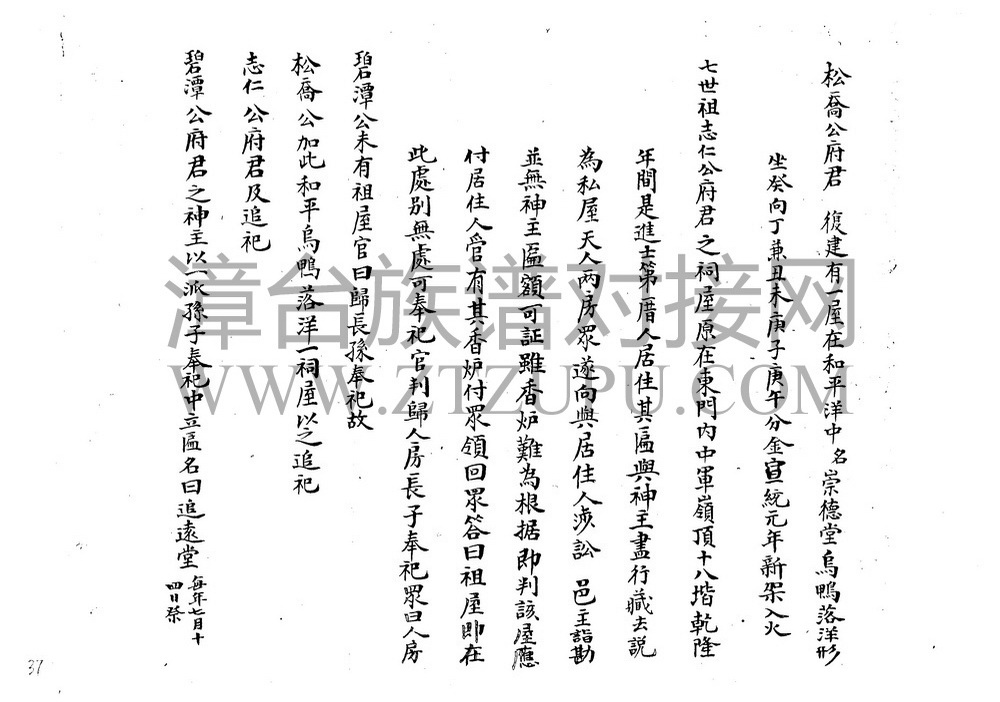 松喬公府君 復建有一屋在和平洋中名崇德堂烏鴨落洋形
坐癸向丁兼丑未庚子庚午分金宣統元年新架入火
七世祖志仁公府君之祠屋原在東門內中軍嶺頂十八堦乾隆
年間是進士第厝人居住其匾與神主盡行藏去說
為私屋天人兩房眾遂向與居住人涉訟 邑主詣勘
並無神主匾額可証雖香炉難為根据即判該屋應
付居住人管有其香炉付眾領回眾答曰祖屋即在
此處别無處可奉祀官判歸人房長子奉祀眾曰人房
碧潭公未有祖屋官曰歸長孫奉祀故
松喬公加此和平烏鴨落洋一祠屋以之追祀
志仁公府君及追祀
碧潭公府君之神主以一派孫子奉祀中立匾名曰追遠堂 每年七月十四日祭
37
漳台族谱对接网
WWW.ZTZUPU.COM